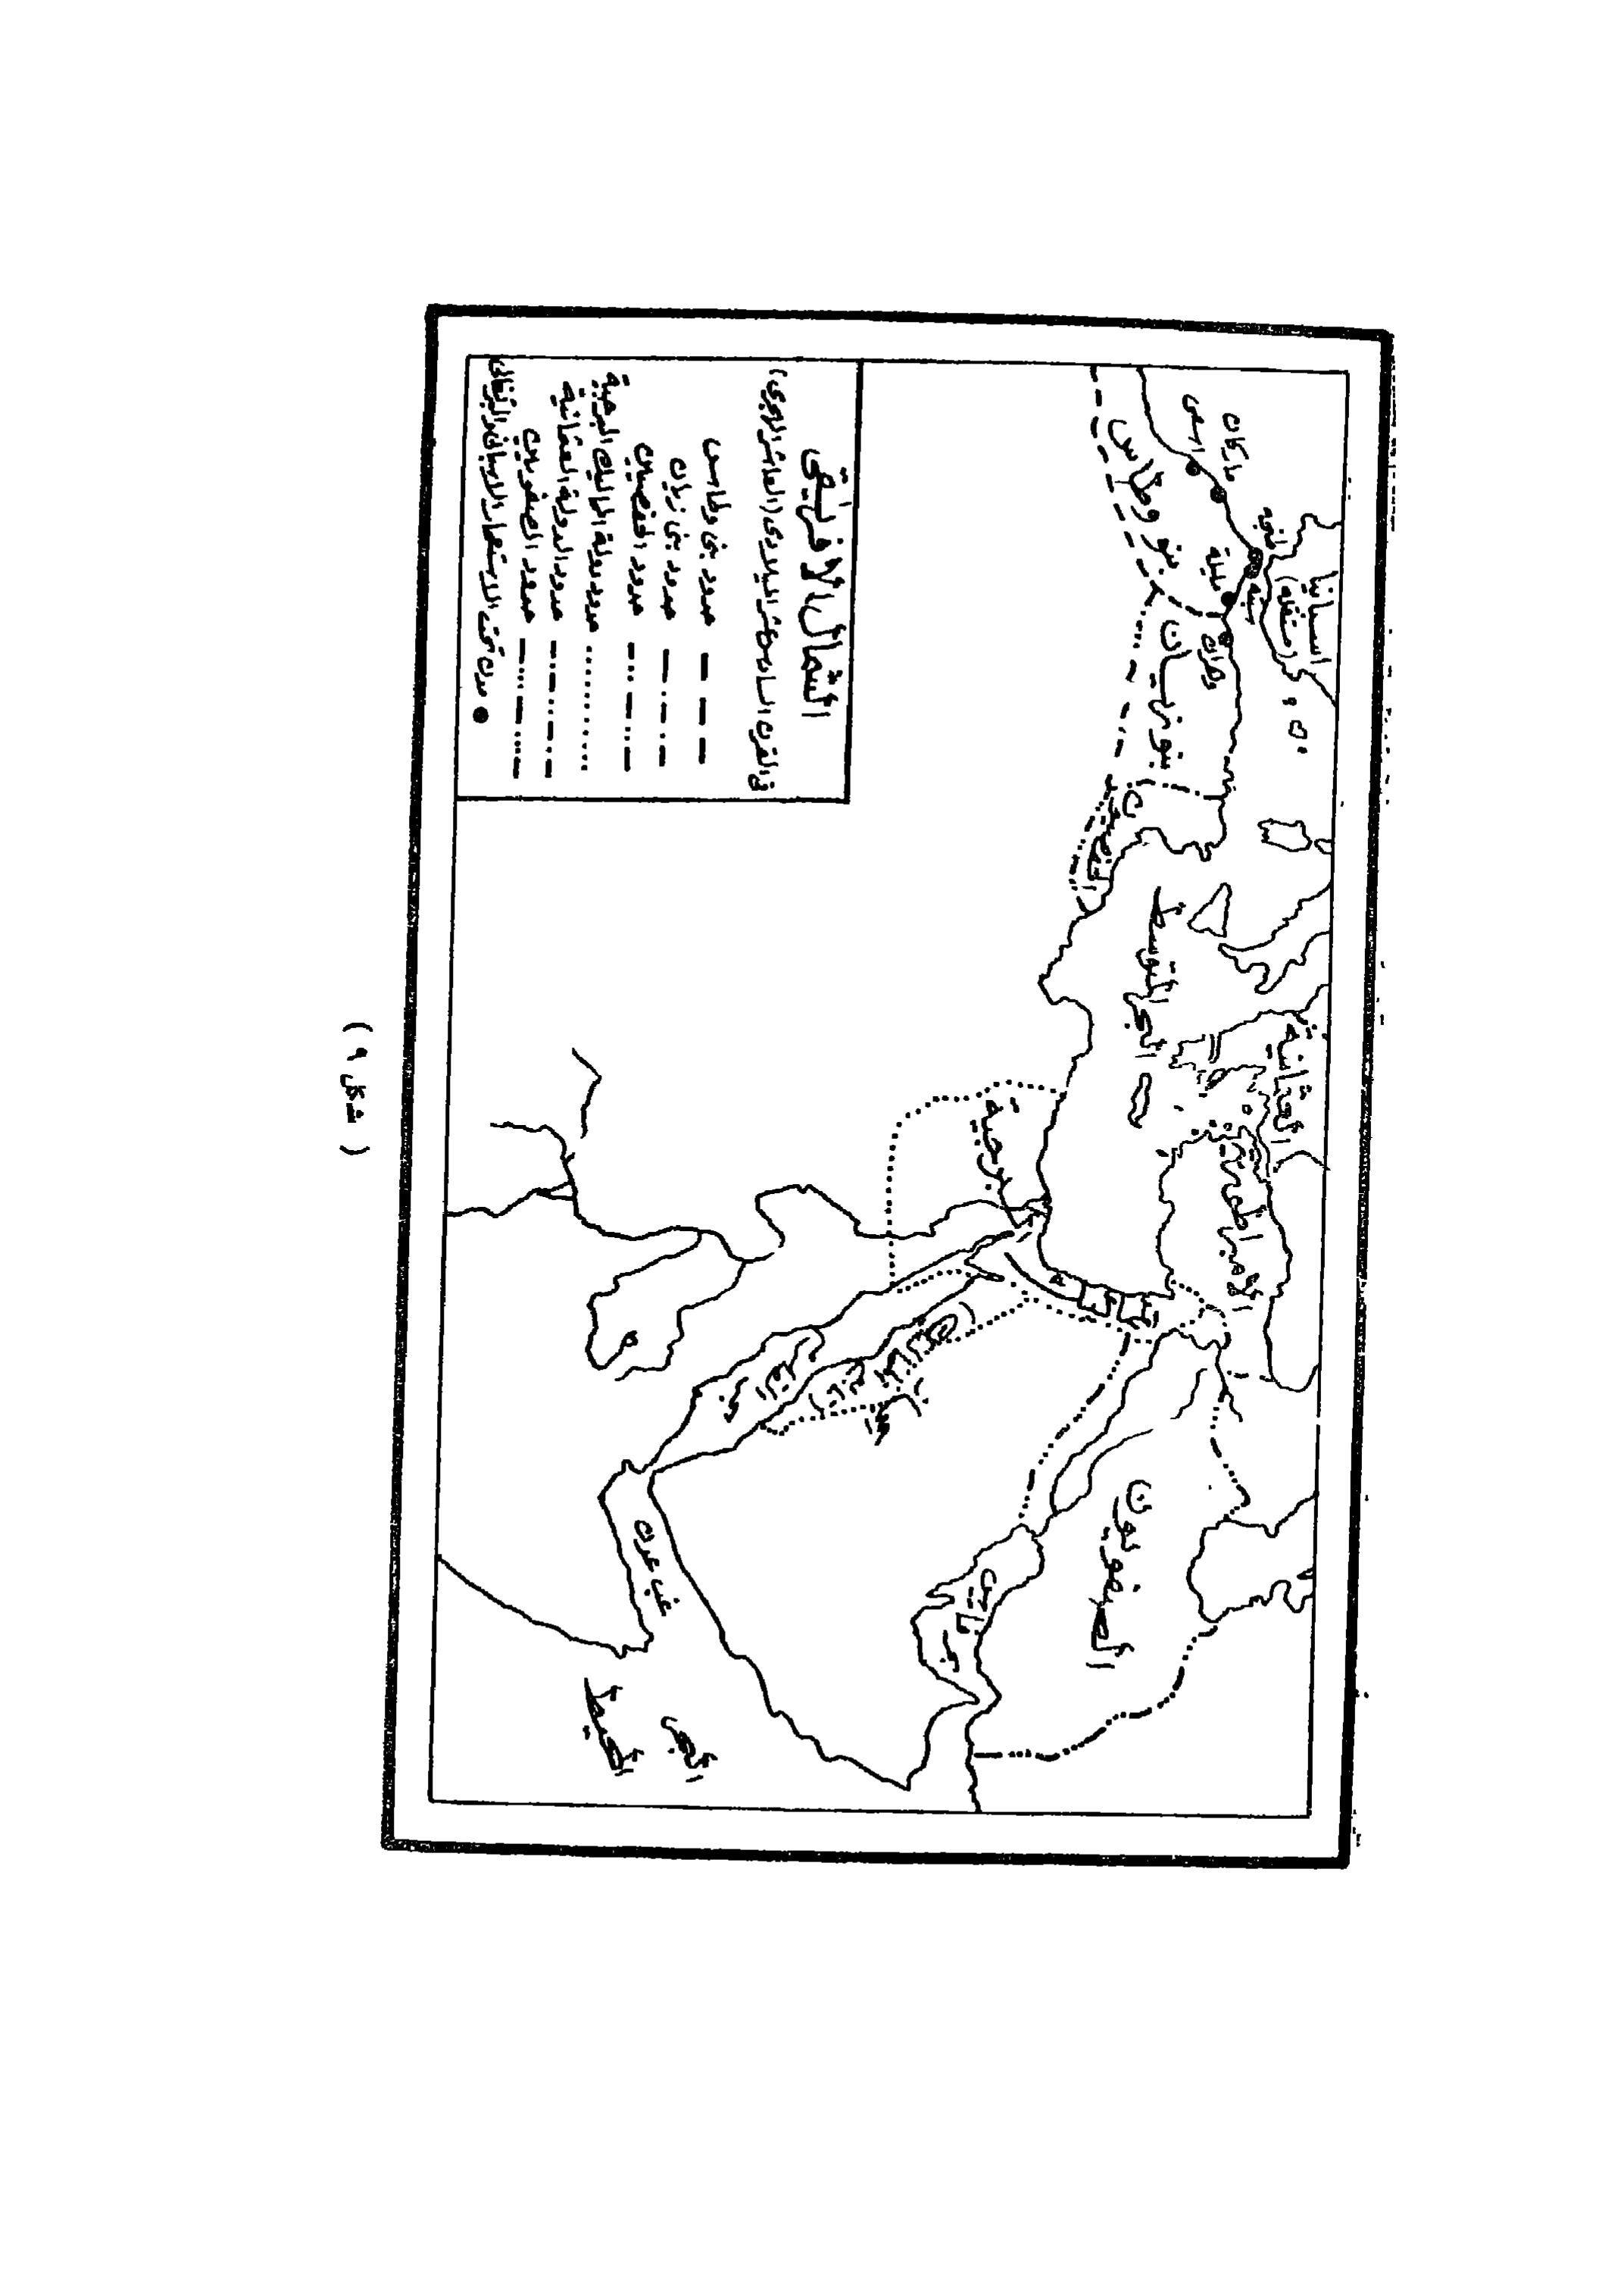 الشمال الافريقى
فى القرن السادس عشر الميلادى (العاشر الهجرى)
حدود بنى وطاس
حدود بنى زيان
حدود الحفصيين
حدود دولة المماليك البرجية
حدود الدولة العثمانية
حدود الصفويين
مدن تحت الاستعمار الاسبانى والبرتغالى
اسبانيا
(مستقلة)
طنجة
سبتة
مليلة
وهران
بنو وطاس
بنو زيان
البحر المتوسط
الامبراطورية
العثمانية
برجية
الصفويون
خليج عدن
البحر
المحيط
( شكل ٩ )